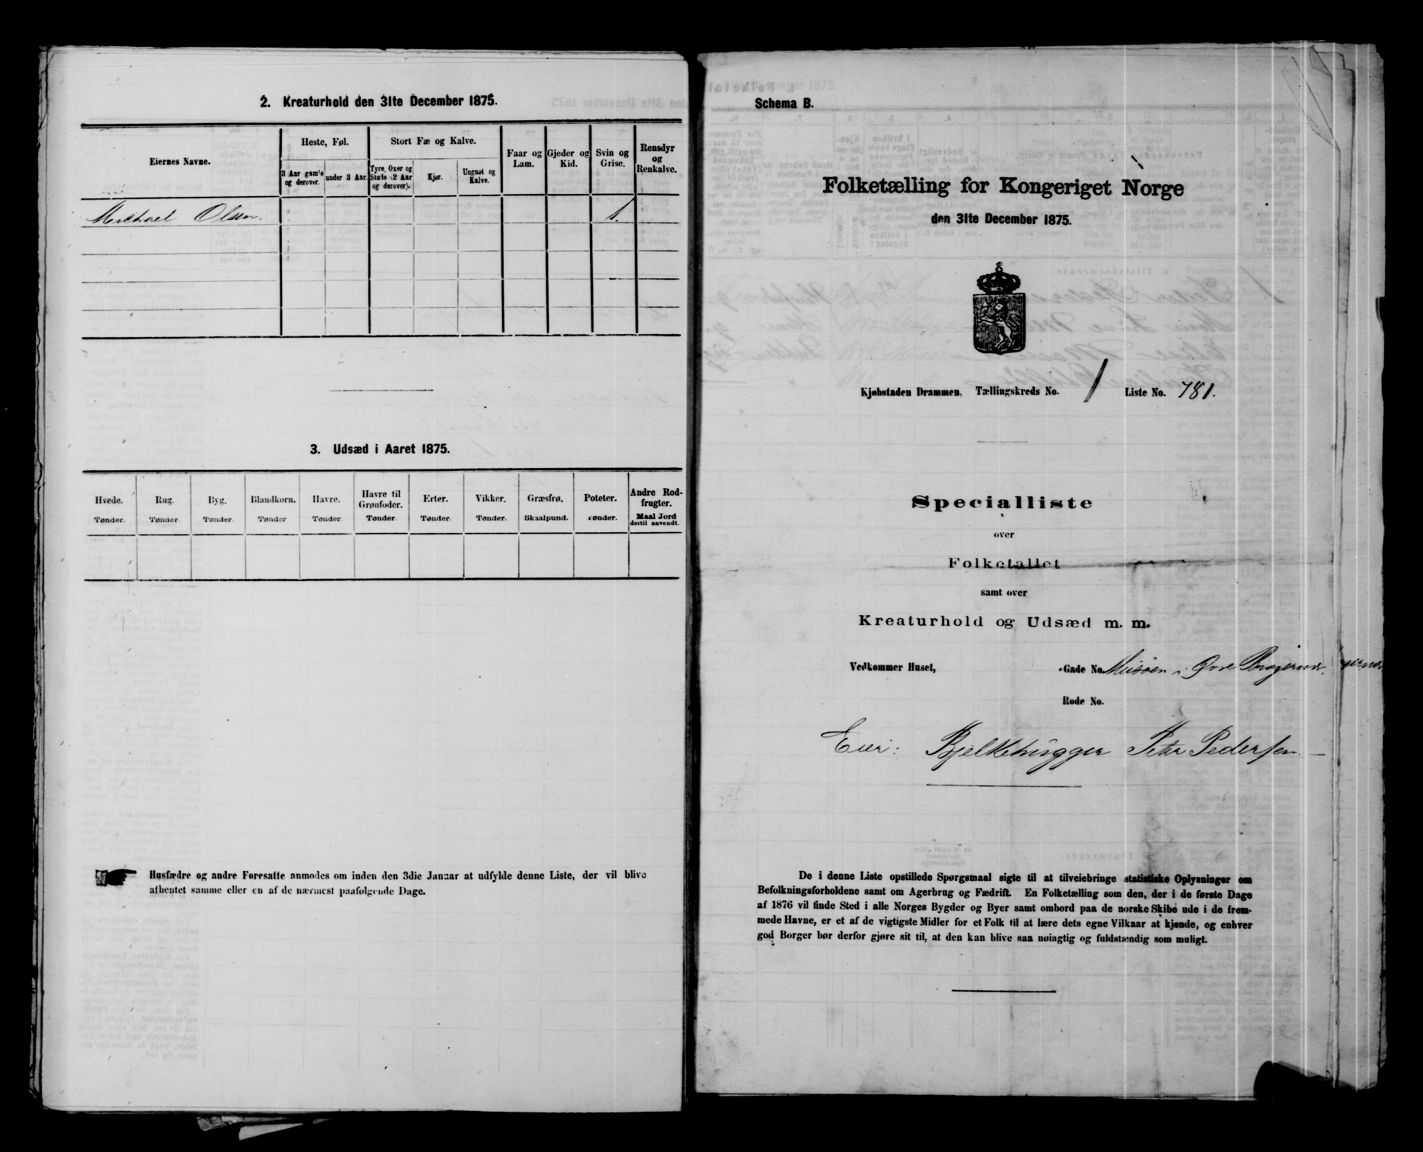 2. Kreaturhold den 31te December 1875.
Eiernes Navne.
Heste, Føl.
Stort Fæ og Kalve.
Faar og Lam.
Gjeder og Kid.
Svin og Grise.
Rensdyr og Renkalve.
3 Aar gamle og derover.
under 3 Aar.
Tyre, Oxer og Stude (2 Aar og derover).
Kjør.
Ungnøt og Kalve.
Michael Olsen. 1.
3. Udsæd i Aaret 1875.
Hvede. Rug. Byg. Blandkorn. Havre. Havre til Grønfoder. Erter. Vikker. Græsfrø. Poteter. Andre Rodfrugter.
Tønder. Tønder. Tønder. Tønder Tønder. Tønder. Tønder. Tønder. Skaalpund. Tønder. Maal Jord dertil anvendt.
Husfædre og andre Foresatte anmodes om inden den 3die Januar at udfylde denne Liste, der vil blive
afhentet samme eller en af de nærmest paafølgende Dage.
Schema B.
Folketælling for Kongeriget Norge
den 31te December 1875.
Kjøbstaden Drammen. Tællingskreds No. 1 Liste No. 781.
Specialliste
over
Folketallet
samt over
Kreaturhold og Udsæd m. m.
Vedkommer Huset, Gade No. Øvre
Rode No.
Eier: Bjelkehugger Peter Pedersen
De i denne Liste opstillede Spørgsmaal sigte til at tilveiebringe statistiske Oplysninger om
Befolkningsforholdene samt om Agerbrug og Fædrift. En Folketælling som den, der i de første Dage
af 1876 vil finde Sted i alle Norges Bygder og Byer samt ombord paa de norske Skibe ude i de frem-
mede Havne, er et af de vigtigste Midler for et Folk til at lære dets egne Vilkaar at kjende, og enhver
god Borger bør derfor gjøre sit til, at den kan blive saa nøiagtig og fuldstændig som muligt.